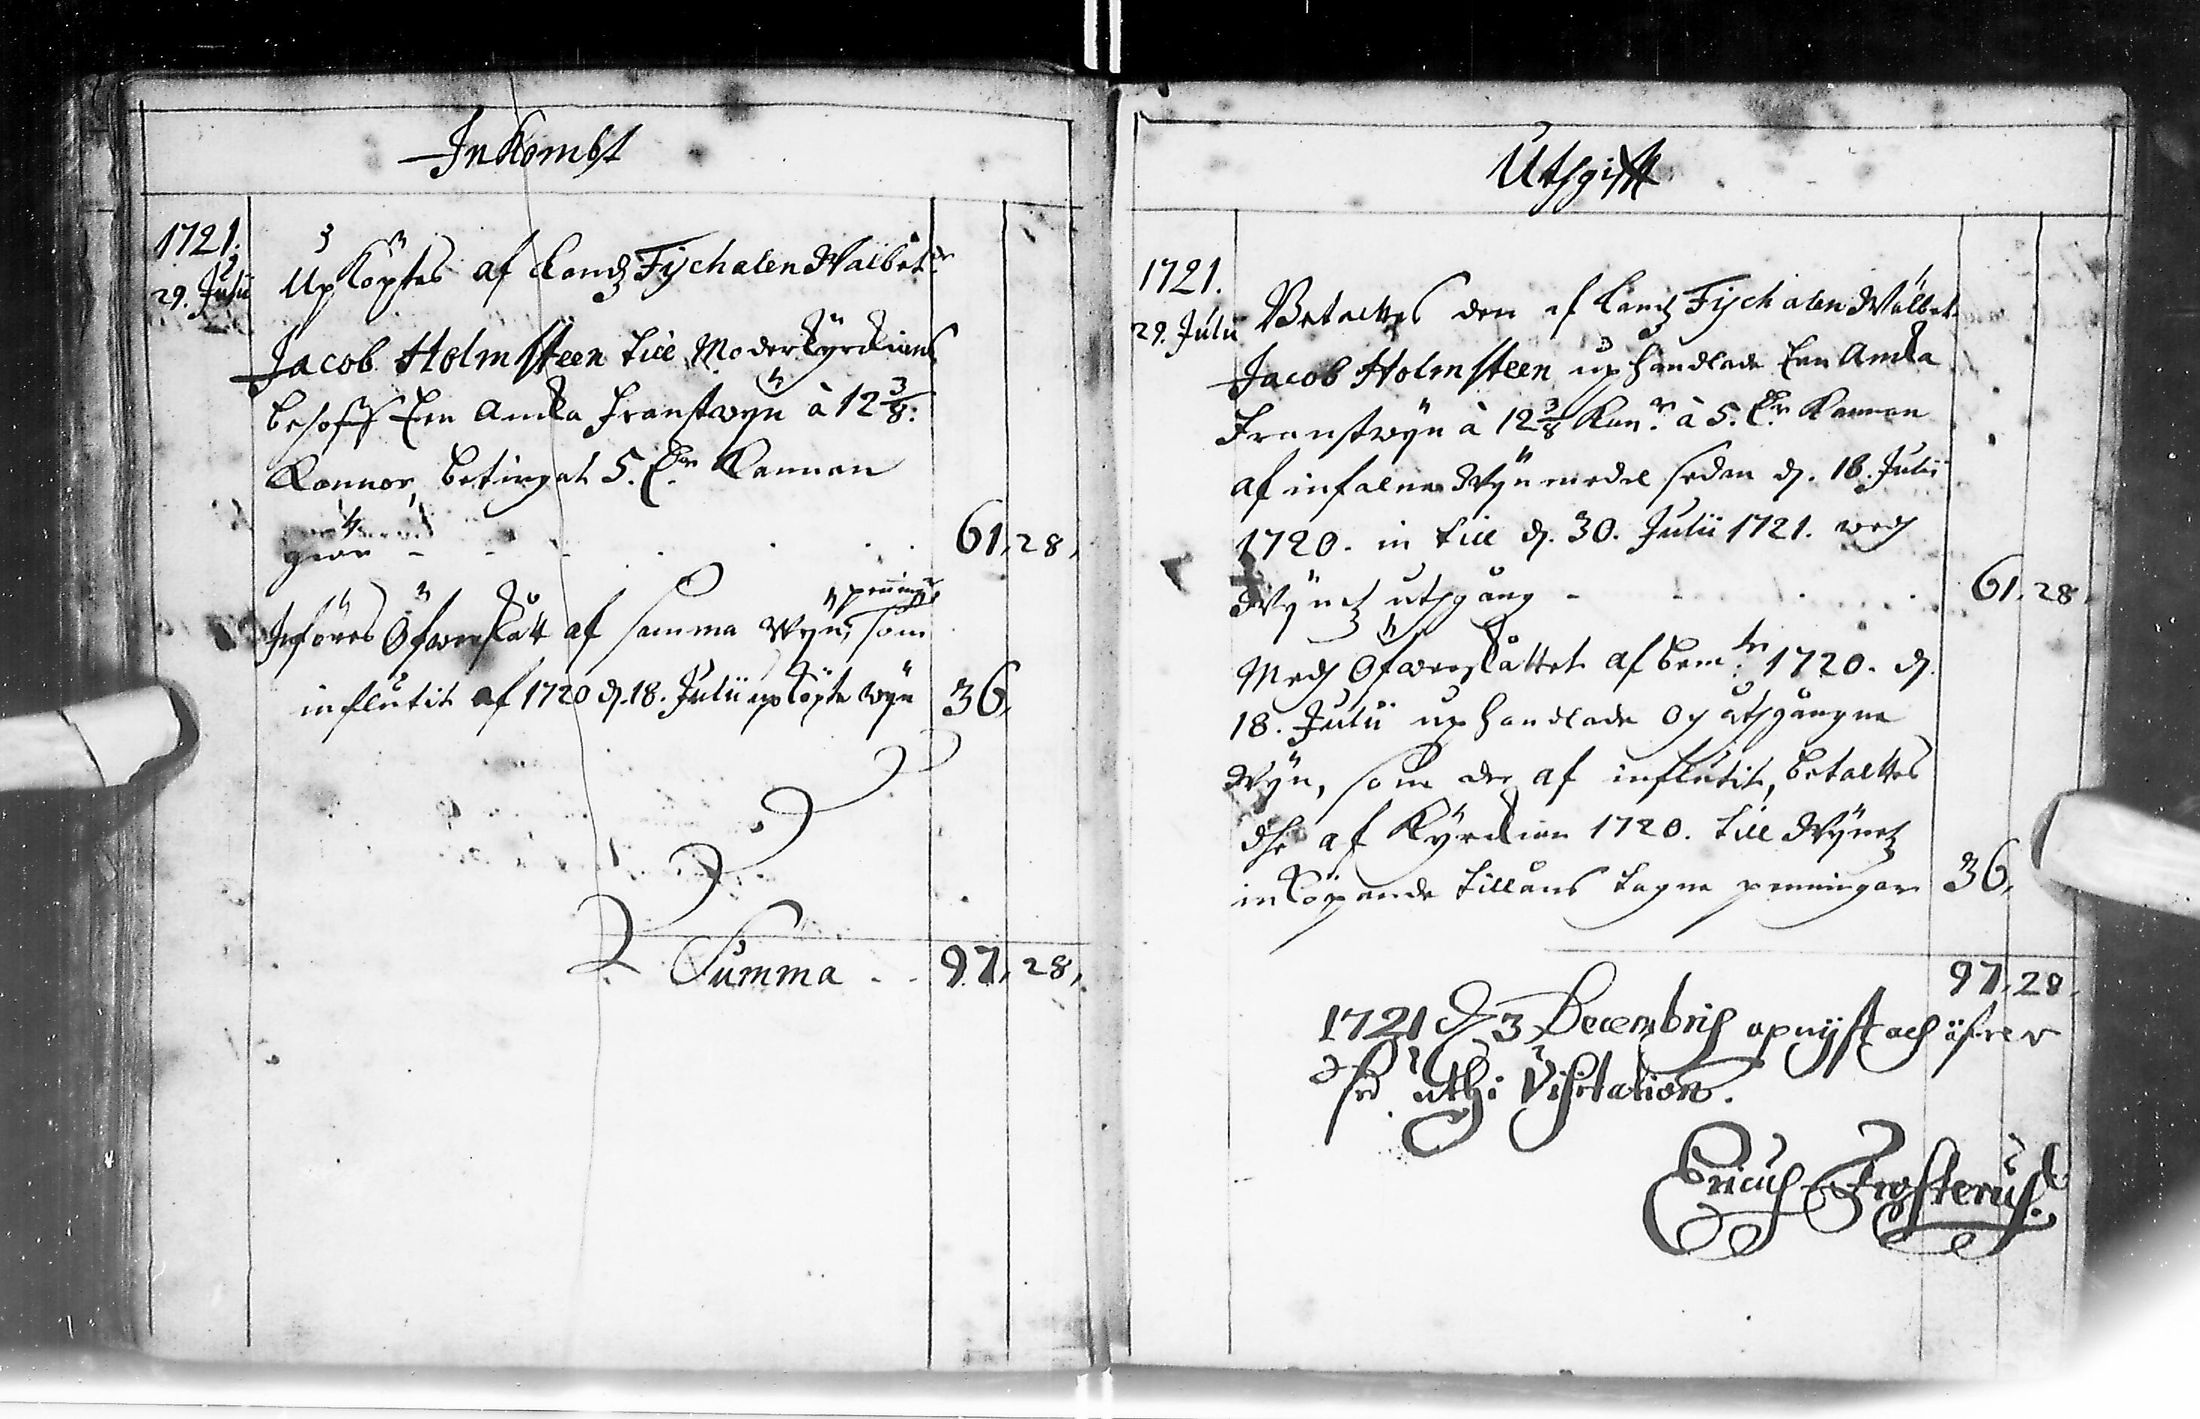 Inkombst
1721.
29. Julii
Upköptes af Landz Fischalen Wälbet:
Jacob Holmsteen till Moderkyrkians
behoff Een Ancka Franstwyn à 12 3/8:
Kannor, betingat 5. Kannan
giör - - - 61, 28,
Införes Öfwerskått af samma Wyn, som
penningr
influtit af 1720 d. 18. Julii upköpte wyn 36,
Summa - - 97, 28,
Utgifft
1721.
29. Julii
Betaltes den af Landz Fischalen Wälbet
Jacob Holmsteen uphandlade Een Ancka
Franstwyn à 12 3/8 Kan:r à 5. Kannan
af infalne Wyn medel sedan d. 18. Julii
1720. in till d. 30. Julii 1721. wed
Wynetz uthgång - 61, 28,
Med Öfwerskåttet af bem:te 1720. d.
18. Julii uphandlade och uthgångne
Wyn, som der af influtit, betaltes
dhe af Kyrkian 1720. till Wynetz
inköpande tillåns tagne penningar 36,
97, 28,
1721 d 3 Decembris upnyst och öfwer
sed uthi Visitation.
Ericus Frosterus.